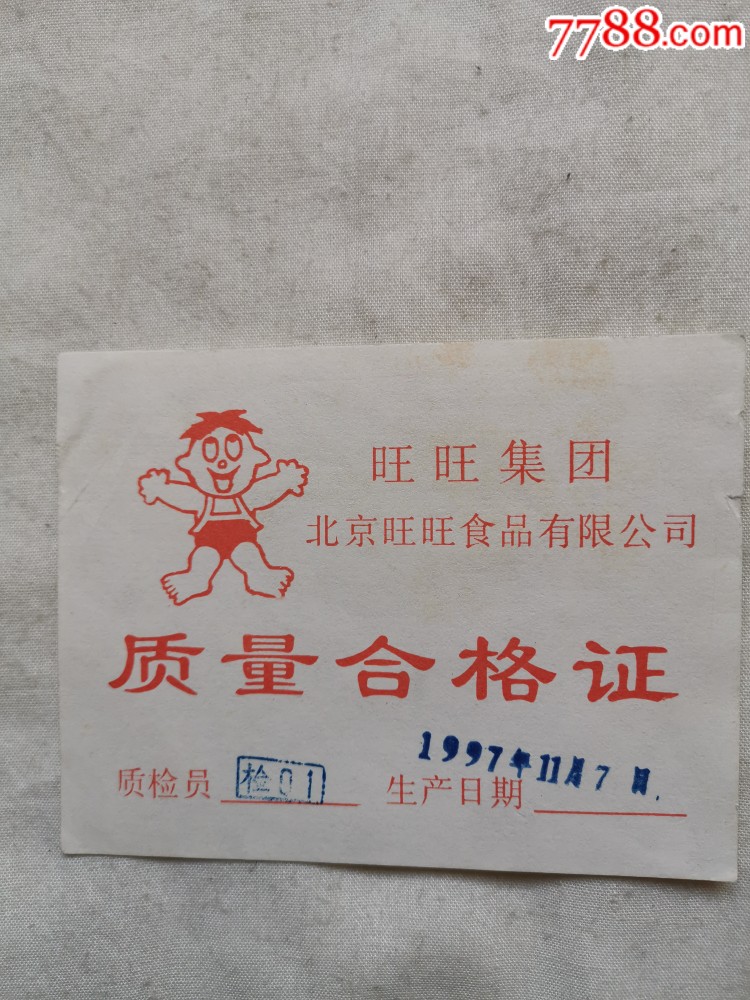 7788.com
旺旺集团
北京旺旺食品有限公司
质量合格证
质检员 检01 生产日期 1997年11月7日.